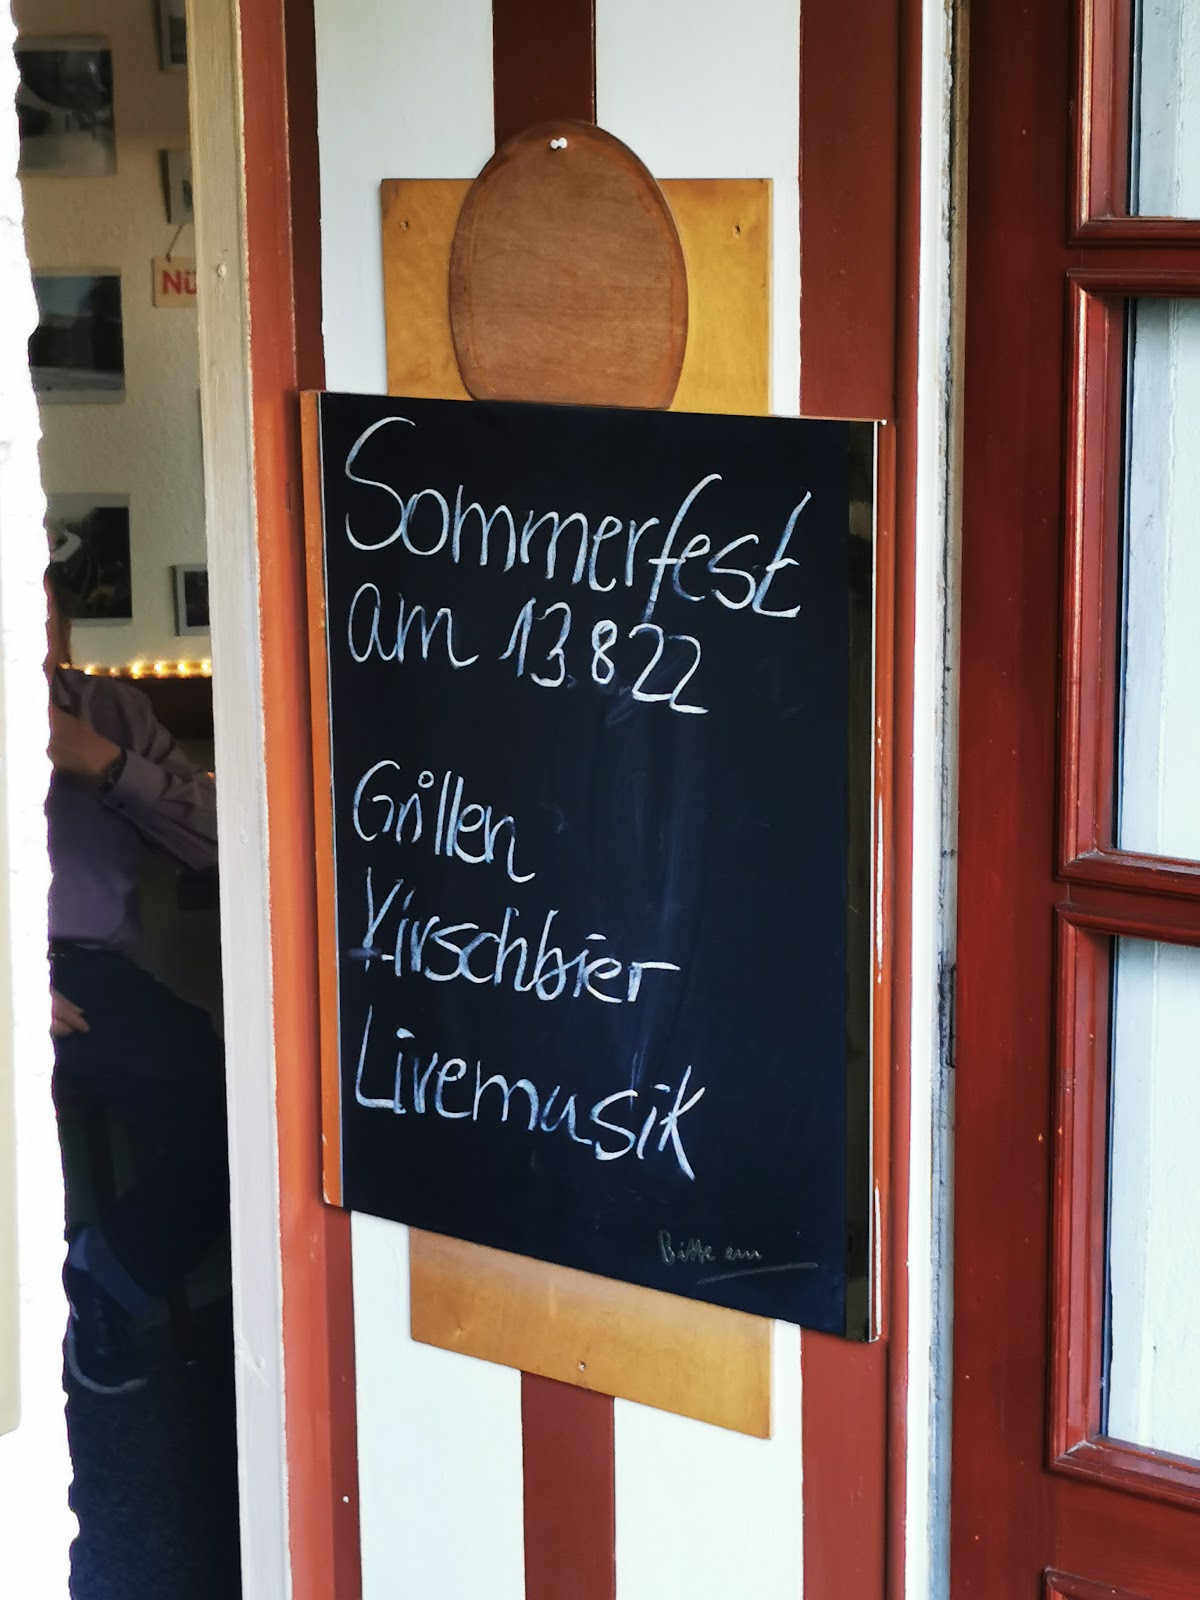 NÜ
Sommerfest
am 13.8.22
Grillen
Kirschbier
Livemusik
Bitte